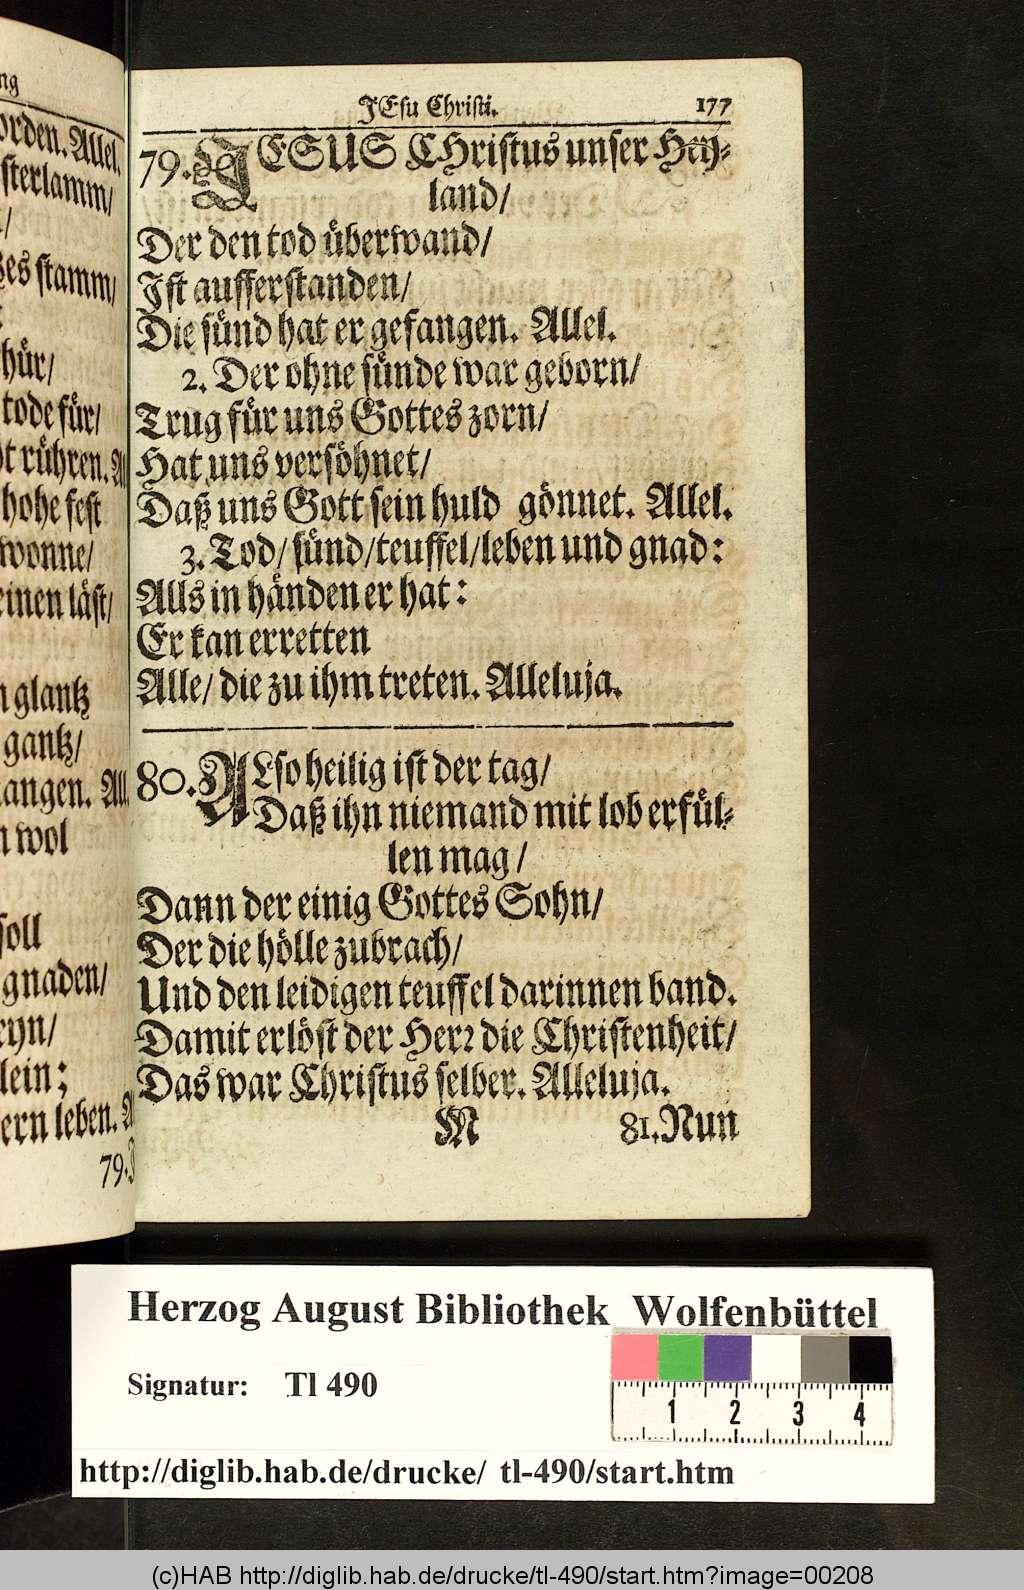 ng
orden. Allel.
sterlamm/
/
es stamm/
hür/
tode für/
rühren. All
hohe fest
wonne/
einen läst/
glantz
gantz/
angen. All.
wol
soll
gnaden/
eyn/
lein;
ern leben. A
79. J
JEsu Christi. 177
79. JESUS CHristus unser Hey-
land/
Der den tod überwand/
Ist aufferstanden/
Die sünd hat er gefangen. Allel.
2. Der ohne sünde war geborn/
Trug für uns Gottes zorn/
Hat uns versöhnet/
Daß uns Gott sein huld gönnet. Allel.
3. Tod/ sünd/ teuffel/ leben und gnad:
Alls in händen er hat:
Er kan erretten
Alle/ die zu ihm treten. Alleluja.
80. ALso heilig ist der tag/
Daß ihn niemand mit lob erfül-
len mag/
Dann der einig Gottes Sohn/
Der die hölle zubrach/
Und den leidigen teuffel darinnen band.
Damit erlöst der Herr die Christenheit/
Das war Christus selber. Alleluja.
M 81. Nun
Herzog August Bibliothek Wolfenbüttel
Signatur: Tl 490
1 2 3 4
http://diglib.hab.de/drucke/ tl-490/start.htm
(c)HAB http://diglib.hab.de/drucke/tl-490/start.htm?image=00208